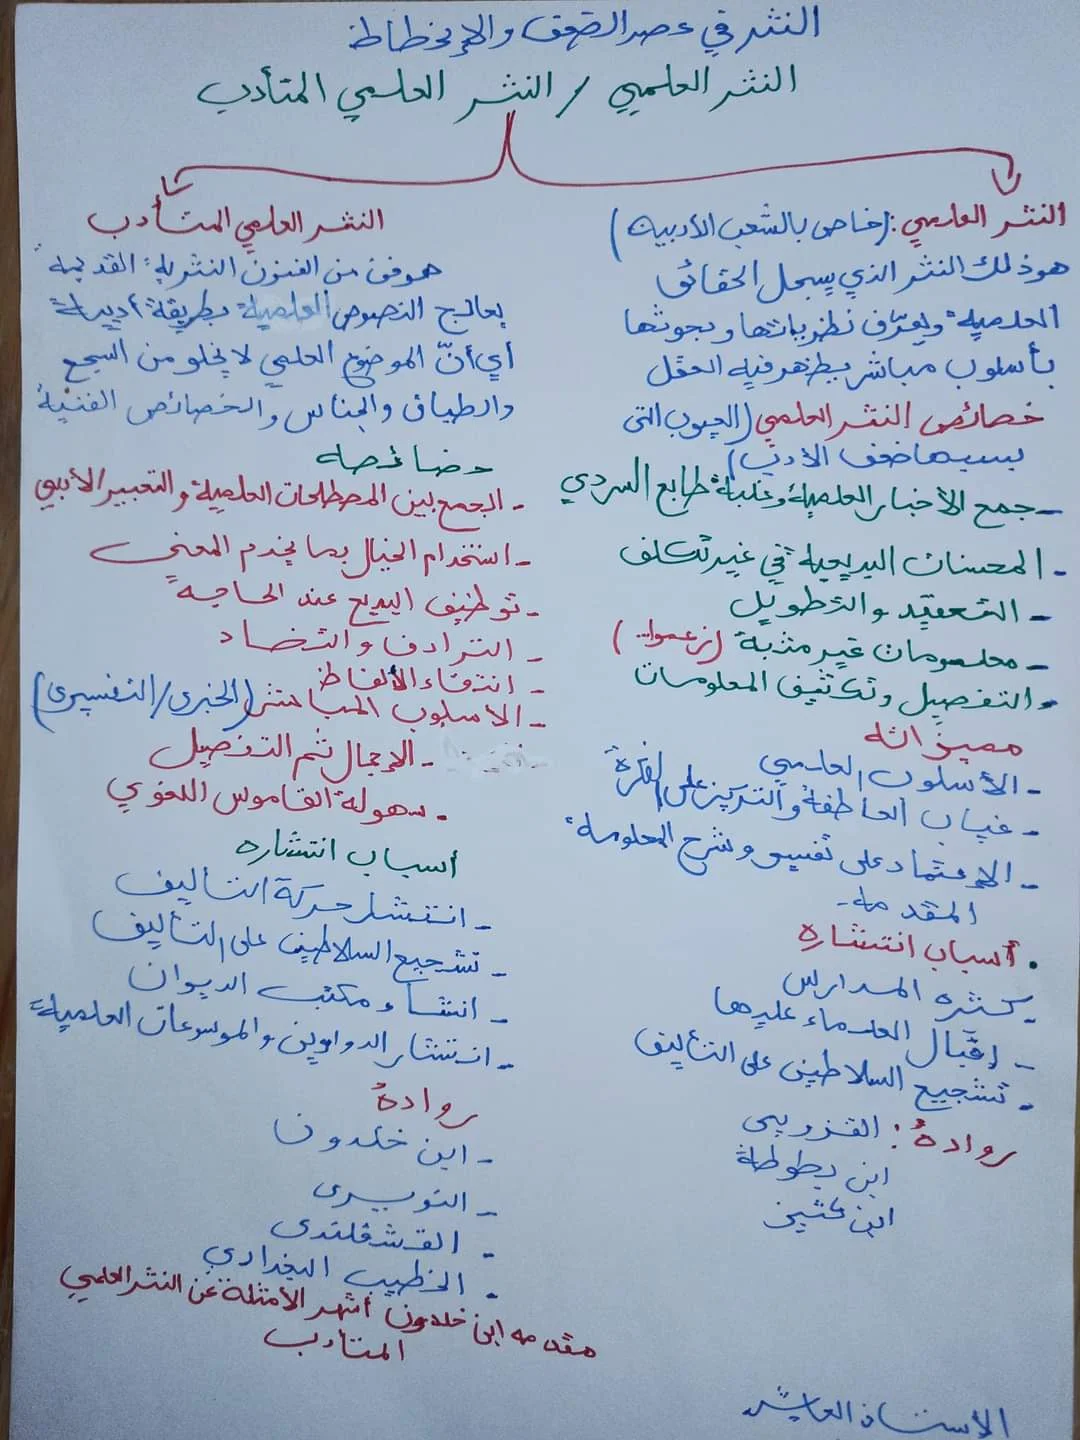 النثر في عصر الضعف والإنحطاط
النثر العلمي / النثر العلمي المتأدب
النثر العلمي: (خاص بالشعب الأدبية)
هو ذلك النثر الذي يسجل الحقائق
العلمية ويعرّف نظرياتها وبحوثها
بأسلوب مباشر يظهر فيه العقل
خصائص النثر العلمي (العيوب التي
بسببها ضعف الأدب)
- جمع الأخبار العلمية وغلبة طابع السردي
- المحسنات البديعية في غير تكلف
- التعقيد والتطويل
- معلومات غير مثبة (زعموا..)
- التفصيل وتكثيف المعلومات
مميزاته
- الأسلوب العلمي
- غياب العاطفة والتركيز على الفكرة
- الإعتماد على تفسير وشرح المعلومة
المقدمة.
. أسباب انتشاره
- كثرة المدارس
- إقبال العلماء عليها
- تشجيع السلاطين على التأليف
روادهُ: القزويني
ابن بطوطة
ابن كثير
النثر العلمي المتأدب
هو فن من الفنون النثرية القديمة
يعالج النصوص العلمية بطريقة أدبية
أي أنّ الموضوع العلمي لا يخلو من السجع
والطباق والجناس والخصائص الفنية
خصائصه
- الجمع بين المصطلحات العلمية والتعبير الأدبي
- استخدام الخيال بما يخدم المعنى
- توظيف البديع عند الحاجة
- الترادف والتضاد
- انتقاء الألفاظ
- الأسلوب المباشر (الخبري / التفسيري)
- الإجمال ثم التفصيل
- سهولة القاموس اللغوي
أسباب انتشاره
- انتشار حركة التأليف
- تشجيع السلاطين على التأليف
- انشاء مكتب الديوان
- انتشار الدواوين والموسوعات العلمية
روادهُ
- ابن خلدون
- النويري
- القلقشندي
- الخطيب البغدادي
مقدمة ابن خلدون أشهر الأمثلة عن النثر العلمي
المتأدب
الأستاذ العايش